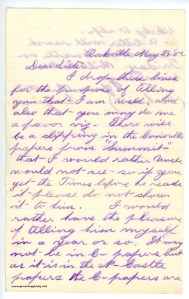 Oakville May 25.80
Dear Sister
I drop these lines
for the purpose of telling
you that I am well and
also that you may do me
a favor viz - There will
be a clipping in the Evansville
papers from "Summit"
that I would rather Uncle
would not see - so if you
get the Times before he reads
it - please do not show
it to him. I would
rather have the pleasure
of telling him myself
in a year or so. It may
not be in E- papers but
as it is in the N. Castle
papers the E- papers are